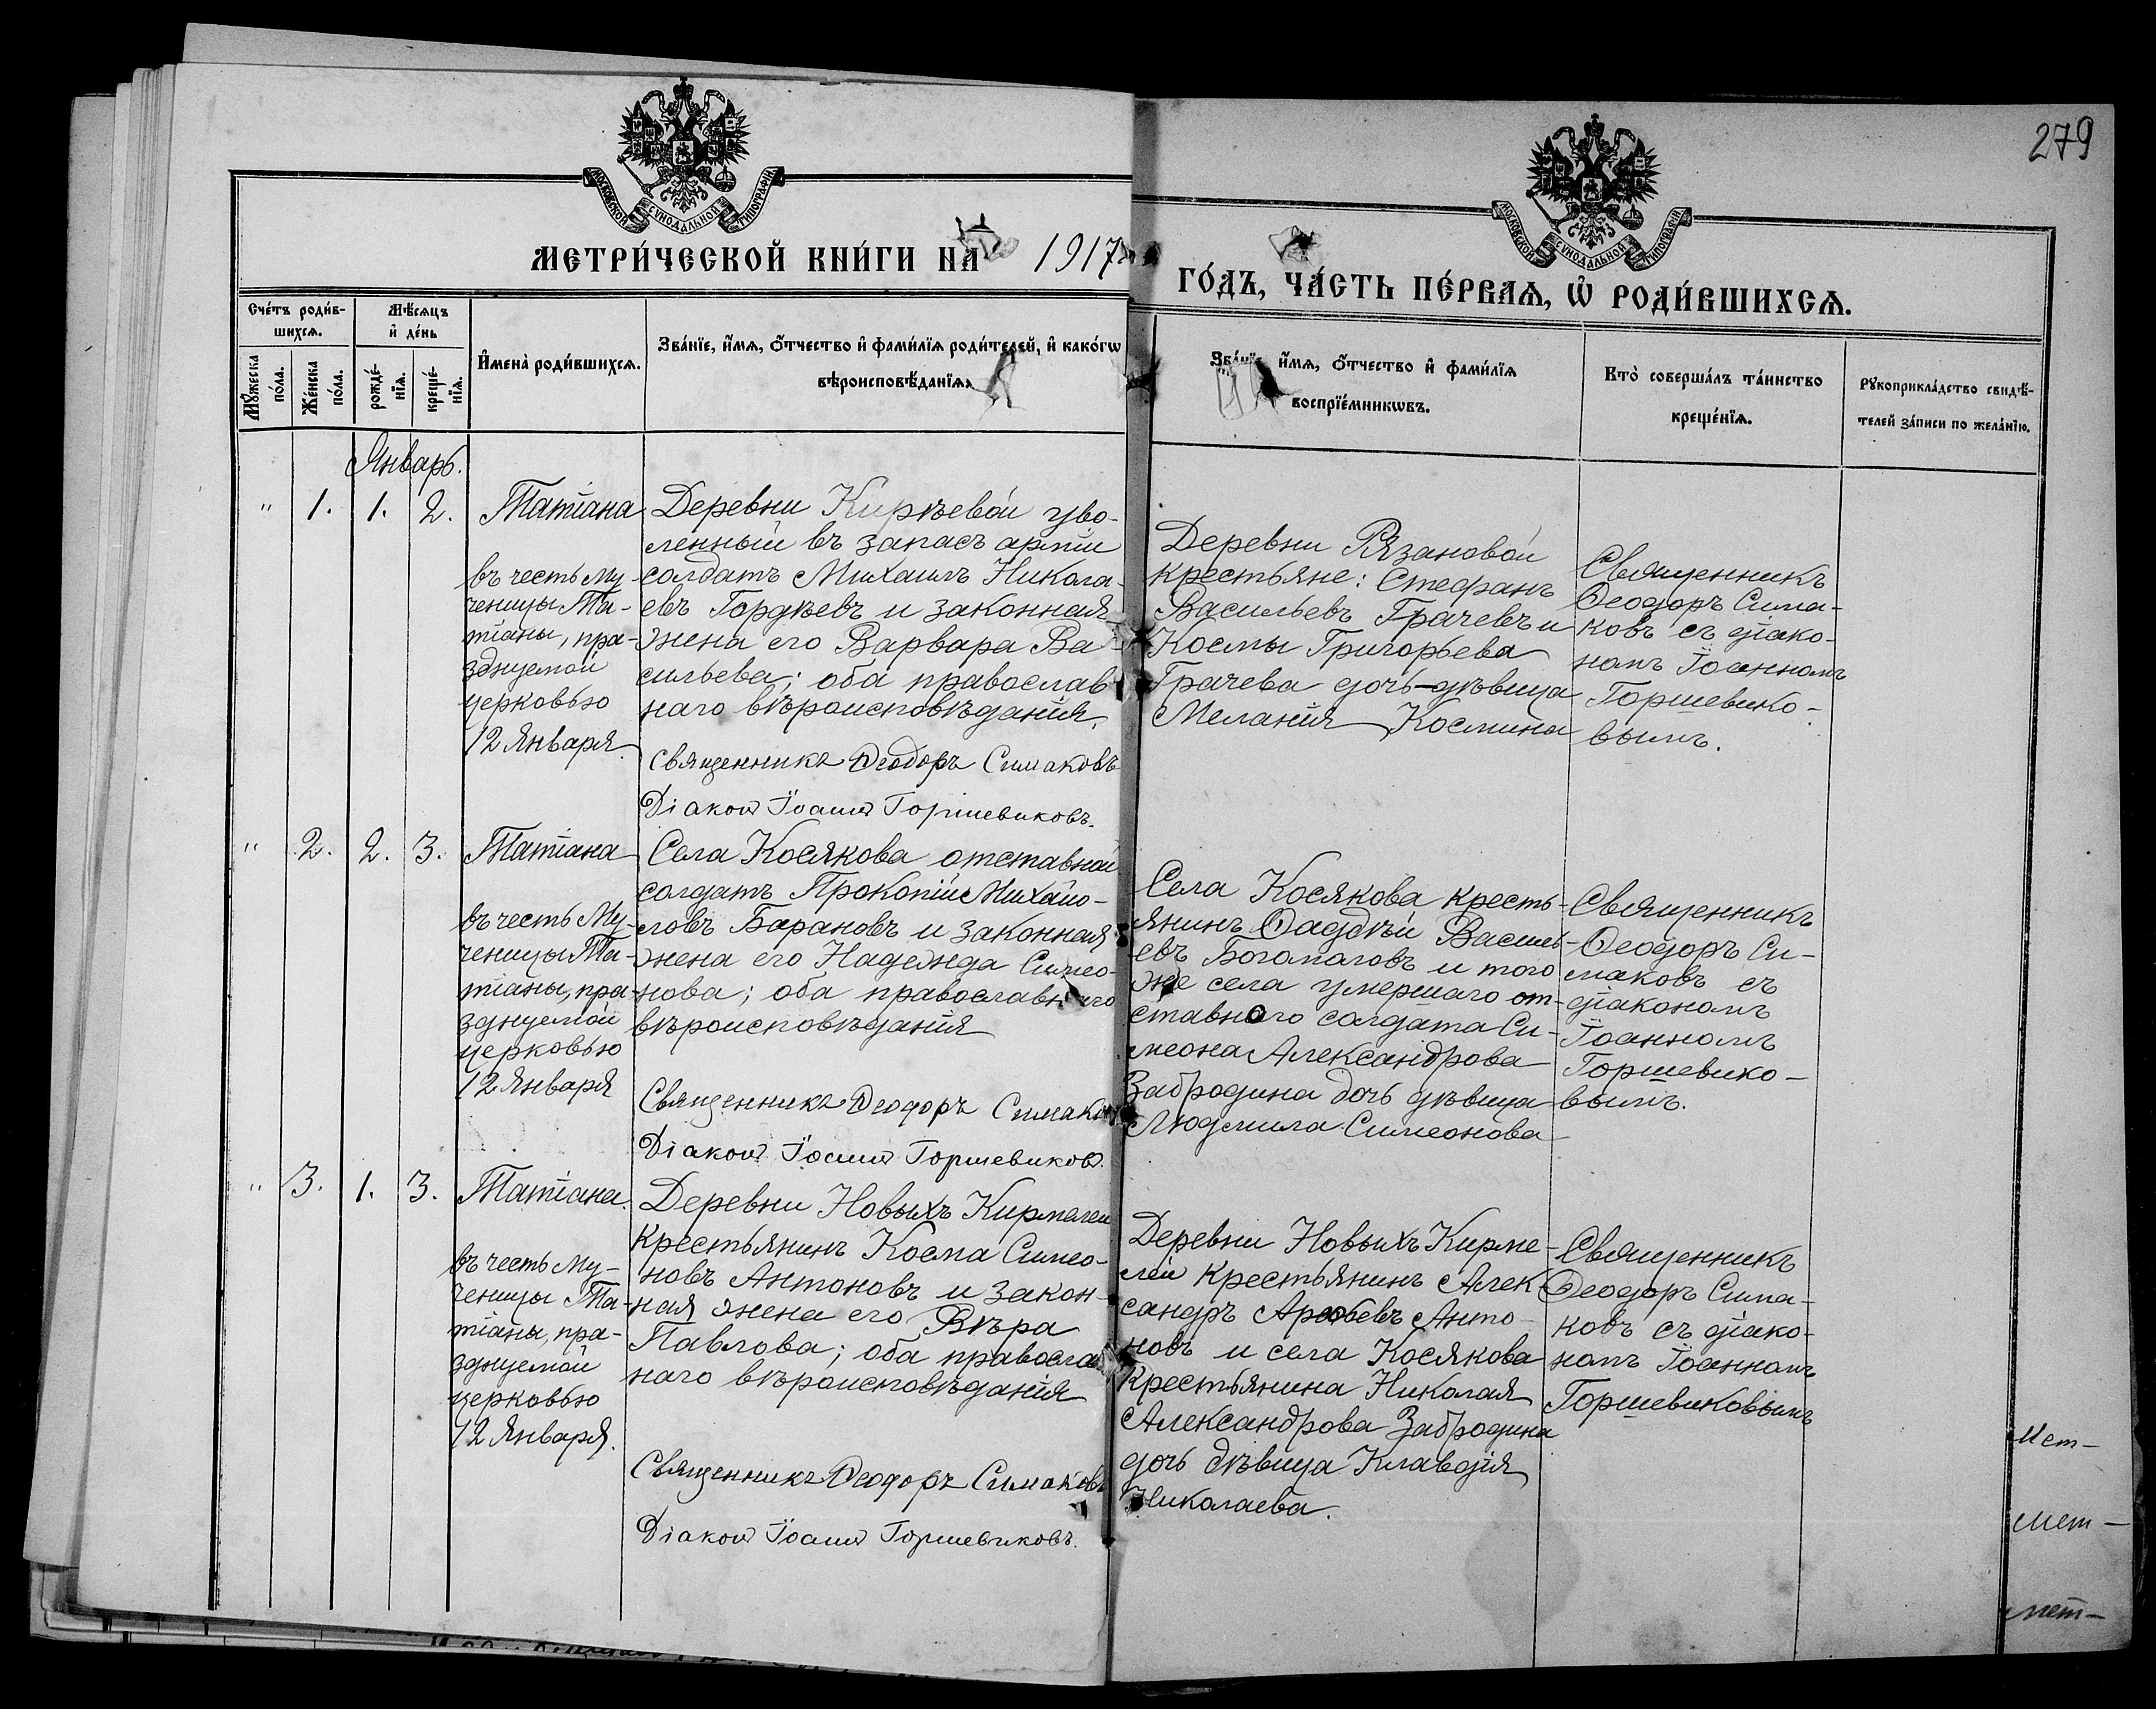 279
МОСКОВСКОЙ СѴНОДАЛЬНОЙ ТИПОГРАФІИ
МОСКОВСКОЙ СѴНОДАЛЬНОЙ ТИПОГРАФІИ
МЕТРИ́ЧЕСКОЙ КНИ́ГИ НА 1917
ГО́ДЪ, ЧА́СТЬ ПЕ́РВАѦ, Ѡ҆ РОДИ́ВШИХСѦ.
Сче́тъ роди́в-
шихсѧ.
Мꙋ́жеска
по́ла.
Же́нска
по́ла.
Мѣ́сѧцъ
и҆ де́нь
рожде́-
нїѧ.
креще́-
нїѧ.
И҆мена̀ роди́вшихсѧ.
Зва́нїе, и҆́мѧ, ѻ҆́тчество и҆ фами́лїѧ роди́телей, и҆ како́гѡ
вѣроисповѣ́данїѧ.
Зва́нїе, и҆́мѧ, ѻ҆́тчество и҆ фами́лїѧ
воспрїе́мникѡвъ.
Кто̀ соверша́лъ та́инство
креще́нїѧ.
Рꙋкоприкла́дство свидѣ́-
телей за́писи по жела́нїю.
Январь.
" 1. 1. 2.
Татіана
въ честь Му-
ченицы Та-
тіаны, пра-
зднуемой
церковью
12 Января.
Деревни Киркѣевой уво-
ленный въ запасъ арміи
солдатъ Михаилъ Никола-
евъ Гордѣевъ и законная
жена его Варвара Ва-
сильева; оба православ-
наго вѣроисповѣданія.
Священникъ Ѳеодоръ Симаковъ
Діаконъ Іоаннъ Горшевиковъ.
Деревни Рязановой
крестьяне: Стефанъ
Васильевъ Грачевъ и
Космы Григорьева
Грачева дочь-дѣвица
Меланія Космина
Священникъ
Ѳеодоръ Сима-
ковъ съ діако-
номъ Іоанномъ
Горшевико-
вымъ.
" 2. 2. 3.
Татіана
въ честь Му-
ченицы Та-
тіаны, пра-
зднуемой
церковью
12 Января
Села Косякова отставной
солдатъ Прокопій Михайло-
ловъ Барановъ и законная
жена его Надежда Симео-
нова; оба православнаго
вѣроисповѣданія
Священникъ Ѳеодоръ Симаковъ
Діаконъ Іоаннъ Горшевиковъ.
Села Косякова кресть-
янинъ Ѳаддѣй Василь-
евъ Богомоловъ и того
же села умершаго от-
ставного солдата Си-
меона Александрова
Забродина дочь дѣвица
Людмила Симеонова
Священникъ
Ѳеодоръ Си-
маковъ съ
діакономъ
Іоанномъ
Горшевико-
вымъ.
" 3. 1. 3.
Татіана.
въ честь Му-
ченицы Та-
тіаны, пра-
зднуемой
церковью
12 Января.
Деревни Новыхъ Кирмелей
крестьянинъ Косма Симео-
новъ Антоновъ и закон-
ная жена его Вѣра
Павлова; оба православ-
наго вѣроисповѣданія
Священникъ Ѳеодоръ Симаковъ
Діаконъ Іоаннъ Горшевиковъ.
Деревни Новыхъ Кирме-
лей крестьянинъ Алек-
сандръ Анто-
новъ и села Косякова
крестьянина Николая
Александрова Забродина
дочь дѣвица Клавдія
Николаева.
Священникъ
Ѳеодоръ Сима-
ковъ съ діако-
номъ Іоанномъ
Горшевиковымъ